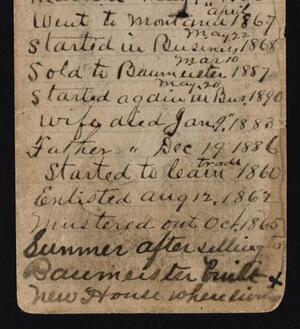 april
Went to montana 1867
May 22
Started in Business 1868
Mar 10
Sold to Baumeister 1887
May, 20
Started again in Bus, 1890
Wife died Jan, 9" 1883
Father " Dec 19 1886
trade
Started to learn 1860
Enlisted aug 12, 1862
Mustered out Oct, 1865
Summer after selling to
Baumeister built +
new House where living